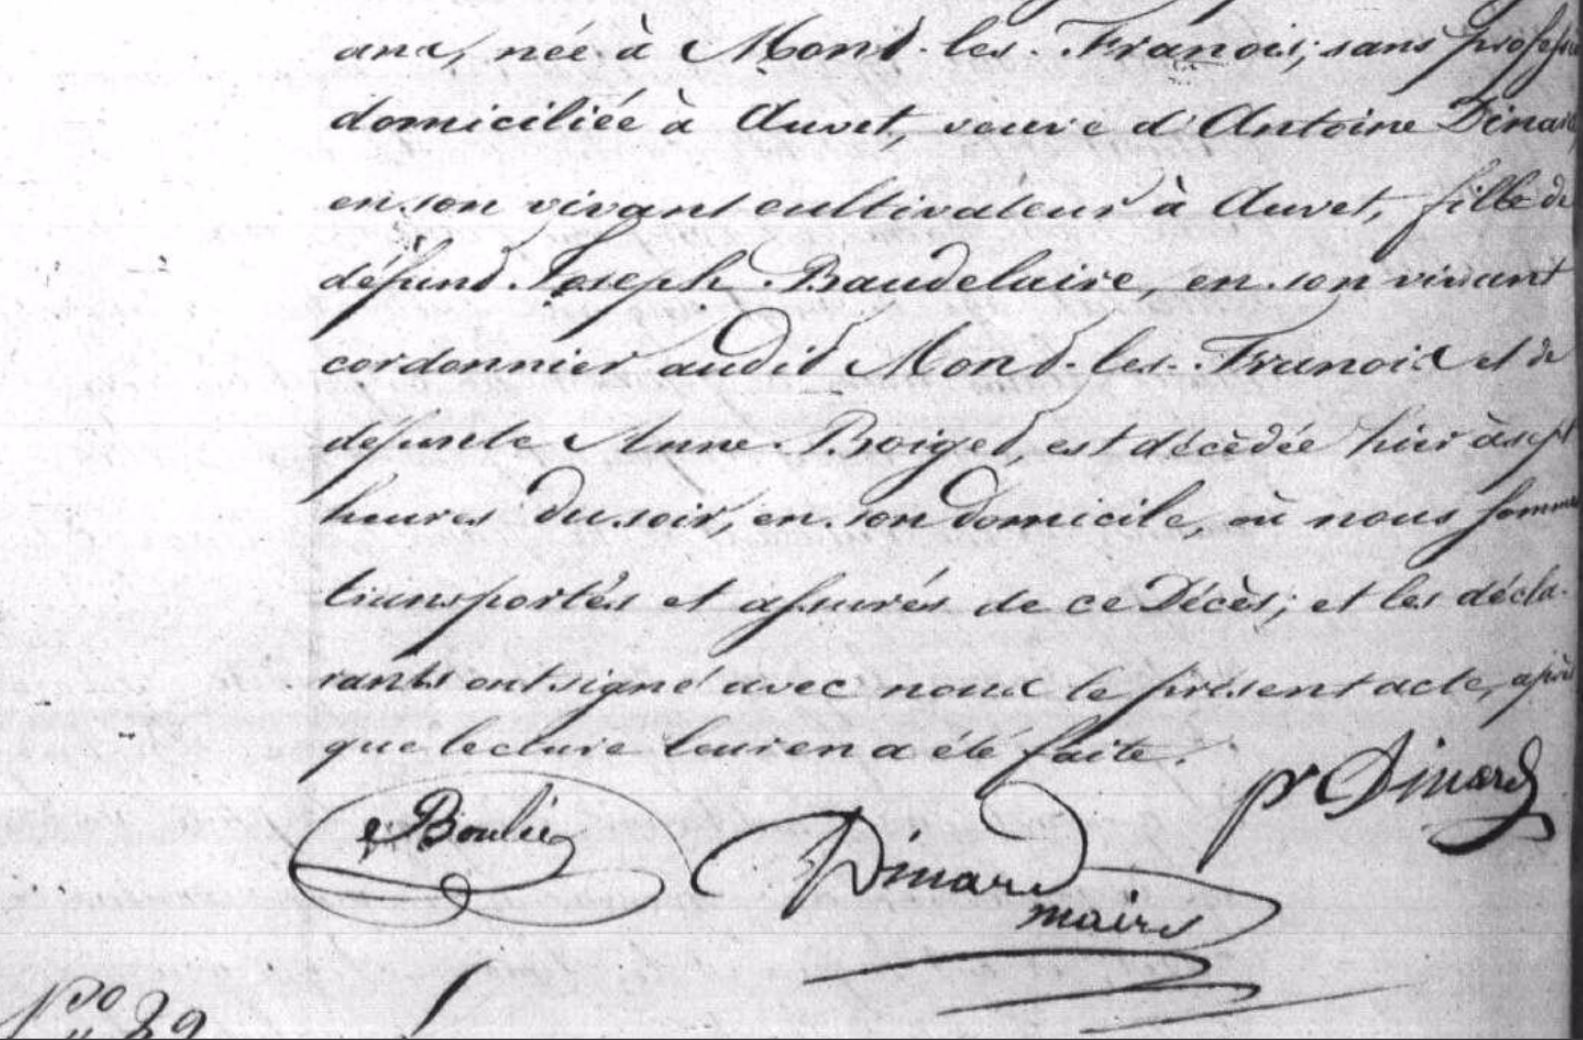 ans, née à Mont-les-Franois, sans profession
domiciliée à Auvet, veuve d'Antoine Dinard,
en son vivant cultivateur à Auvet, fille de
défunt Joseph Baudelaire, en son vivant
cordonnier audit Mont-les-Franois et de
défunte Anne Boiget, est décédée hier à sept
heures du soir, en son domicile, où nous sommes
transportés et assurés de ce Décès; et les décla-
rants ont signé avec nous le présent acte, après
que lecture leur en a été faite.
p Dinard
Dinard
maire
No 39